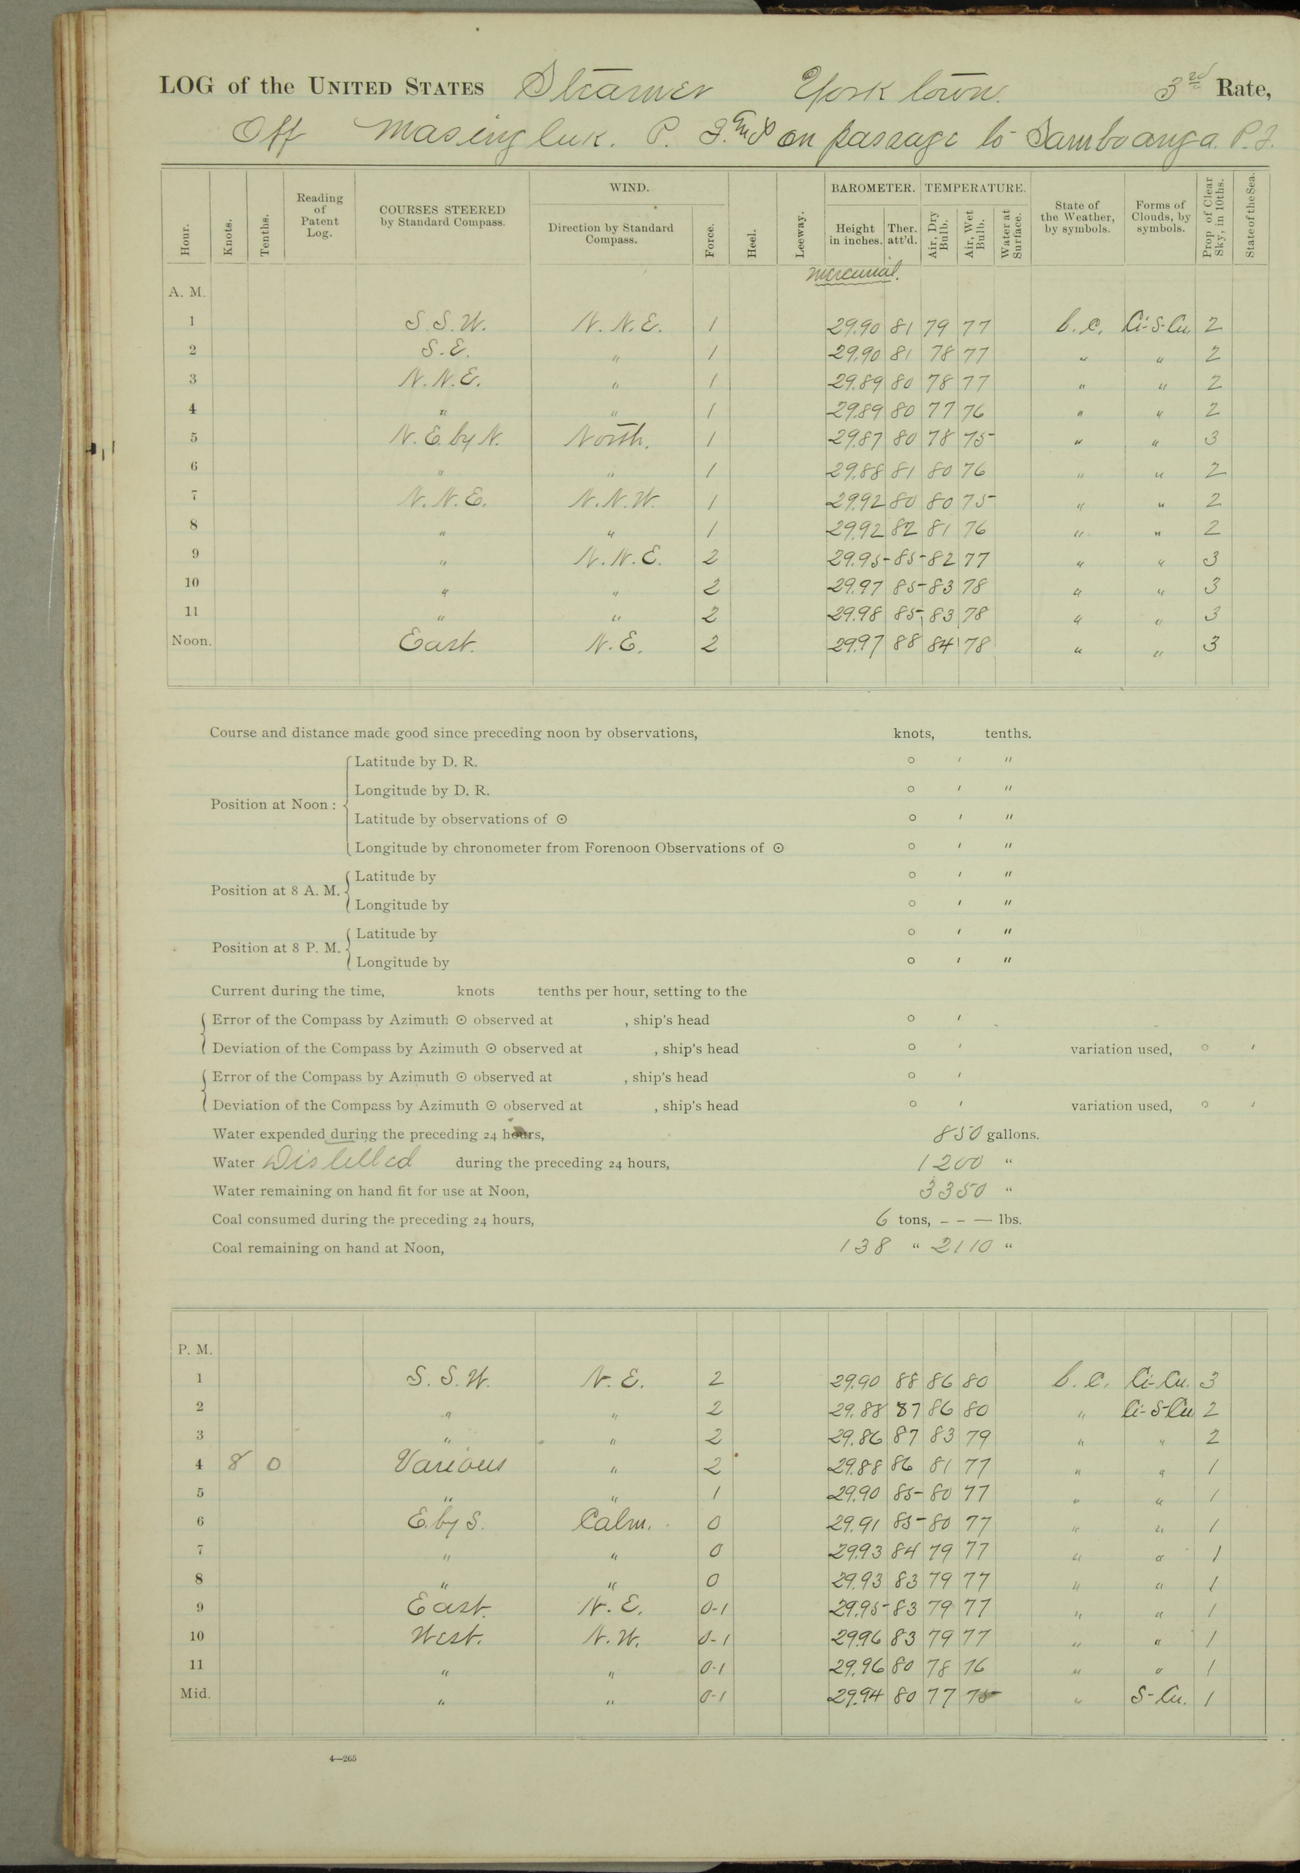 LOG of the UNITED STATES Steamer Yorktown. 3rd Rate,
Off Masingluk. P. I. and on passage to Samboanga. P. I.
Hour. Knots. Tenths. Reading of Patent Log. COURSES STEERED by Standard Compass. WIND. Direction by Standard Compass. Force. Heel. Leeway. BAROMETER. Height in inches. Ther. att'd. TEMPERATURE. Air, Dry Bulb. Air, Wet Bulb. Water at Surface. State of the Weather, by symbols. Forms of Clouds, by symbols. Prop of Clear Sky, in 10ths. State of the Sea.
mercurial.
A. M.
1 S.S.W. N.N.E. 1 29.90 81 79 77 b.c. Ci-S-Cu 2
2 S.E. " 1 29.90 81 78 77 " " 2
3 N.N.E. " 1 29.89 80 78 77 " " 2
4 " " 1 29.89 80 77 76 " " 2
5 N.E. by N. North. 1 29.87 80 78 75 " " 3
6 " " 1 29.88 81 80 76 " " 2
7 N.N.E. N.N.W. 1 29.92 80 80 75 " " 2
8 " " 1 29.92 82 81 76 " " 2
9 " N.N.E. 2 29.95 85 82 77 " " 3
10 " " 2 29.97 85 83 78 " " 3
11 " " 2 29.98 85 83 78 " " 3
Noon. East. N.E. 2 29.97 88 84 78 " " 3
Course and distance made good since preceding noon by observations, knots, tenths.
Position at Noon: Latitude by D. R. ° ′ ″
Longitude by D. R. ° ′ ″
Latitude by observations of ⊙ ° ′ ″
Longitude by chronometer from Forenoon Observations of ⊙ ° ′ ″
Position at 8 A. M. Latitude by ° ′ ″
Longitude by ° ′ ″
Position at 8 P. M. Latitude by ° ′ ″
Longitude by ° ′ ″
Current during the time, knots tenths per hour, setting to the
Error of the Compass by Azimuth ⊙ observed at , ship's head ° ′
Deviation of the Compass by Azimuth ⊙ observed at , ship's head ° ′ variation used, ° ′
Error of the Compass by Azimuth ⊙ observed at , ship's head ° ′
Deviation of the Compass by Azimuth ⊙ observed at , ship's head ° ′ variation used, ° ′
Water expended during the preceding 24 hours, 850 gallons.
Water Distilled during the preceding 24 hours, 1200 "
Water remaining on hand fit for use at Noon, 3350 "
Coal consumed during the preceding 24 hours, 6 tons, – – — lbs.
Coal remaining on hand at Noon, 138 " 2110 "
P. M.
1 S.S.W. N.E. 2 29.90 88 86 80 b.c. Ci-Cu. 3
2 " " 2 29.88 87 86 80 " Ci-S-Cu 2
3 " " 2 29.86 87 83 79 " " 2
4 8 0 Various " 2 29.88 86 81 77 " " 1
5 " " 1 29.90 85 80 77 " " 1
6 E. by S. Calm. 0 29.91 85 80 77 " " 1
7 " " 0 29.93 84 79 77 " " 1
8 " " 0 29.93 83 79 77 " " 1
9 East. N.E. 0-1 29.95 83 79 77 " " 1
10 West. N.W. 0-1 29.96 83 79 77 " " 1
11 " " 0-1 29.96 80 78 76 " " 1
Mid. " " 0-1 29.94 80 77 75 " S-Cu. 1
4—265